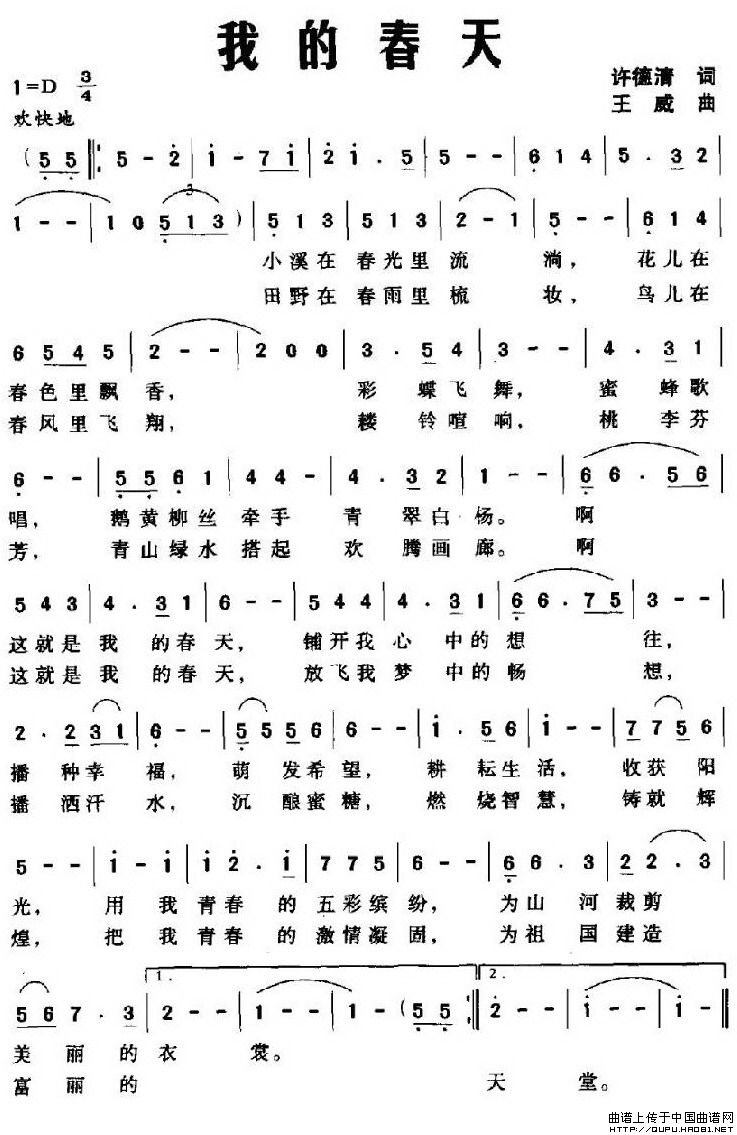 我的春天
1=D 3/4
许德清 词
王威 曲
欢快地
(5 5 ‖: 5 - 2 | 1 - 7 1 | 2 1 . 5 | 5 - - | 6 1 4 | 5 . 3 2 |
1 - - | 1 0 5 1 3 ) | 5 1 3 | 5 1 3 | 2 - 1 | 5 - - | 6 1 4 |
3
小溪在 春光里 流 淌, 花儿在
田野在 春雨里 梳 妆, 鸟儿在
6 5 4 5 | 2 - - | 2 0 0 | 3 . 5 4 | 3 - - | 4 . 3 1 |
春色里飘香, 彩 蝶飞舞, 蜜 蜂歌
春风里飞翔, 耧 铃喧响, 桃 李芬
6 - - | 5 5 6 1 | 4 4 - | 4 . 3 2 | 1 - - | 6 6 . 5 6 |
唱, 鹅黄柳丝 牵手 青 翠白杨。 啊
芳, 青山绿水 搭起 欢 腾画廊。 啊
5 4 3 | 4 . 3 1 | 6 - - | 5 4 4 | 4 . 3 1 | 6 6 . 7 5 | 3 - - |
这就是 我 的春天, 铺开我 心 中的 想 往,
这就是 我 的春天, 放飞我 梦 中的 畅 想,
2 . 2 3 1 | 6 - - | 5 5 5 6 | 6 - - | 1 . 5 6 | 1 - - | 7 7 5 6 |
播 种幸 福, 萌 发希望, 耕 耘生活, 收获 阳
播 洒汗 水, 沉 酿蜜糖, 燃 烧智慧, 铸就 辉
5 - - | 1 - 1 | 1 2 . 1 | 7 7 5 | 6 - - | 6 6 . 3 | 2 2 . 3 |
光, 用 我 青春 的 五彩缤 纷, 为山 河 裁剪
煌, 把 我 青春 的 激情凝 固, 为祖 国 建造
1. 2.
5 6 6 7 . 3 | 2 - - | 1 - - | 1 - ( 5 5 :‖ 2 - - | 1 - - | 1 - ‖
美 丽 的 衣 裳。
富 丽 的 天 堂。
曲谱上传于中国曲谱网
HTTP://QUPU.HAO81.NET